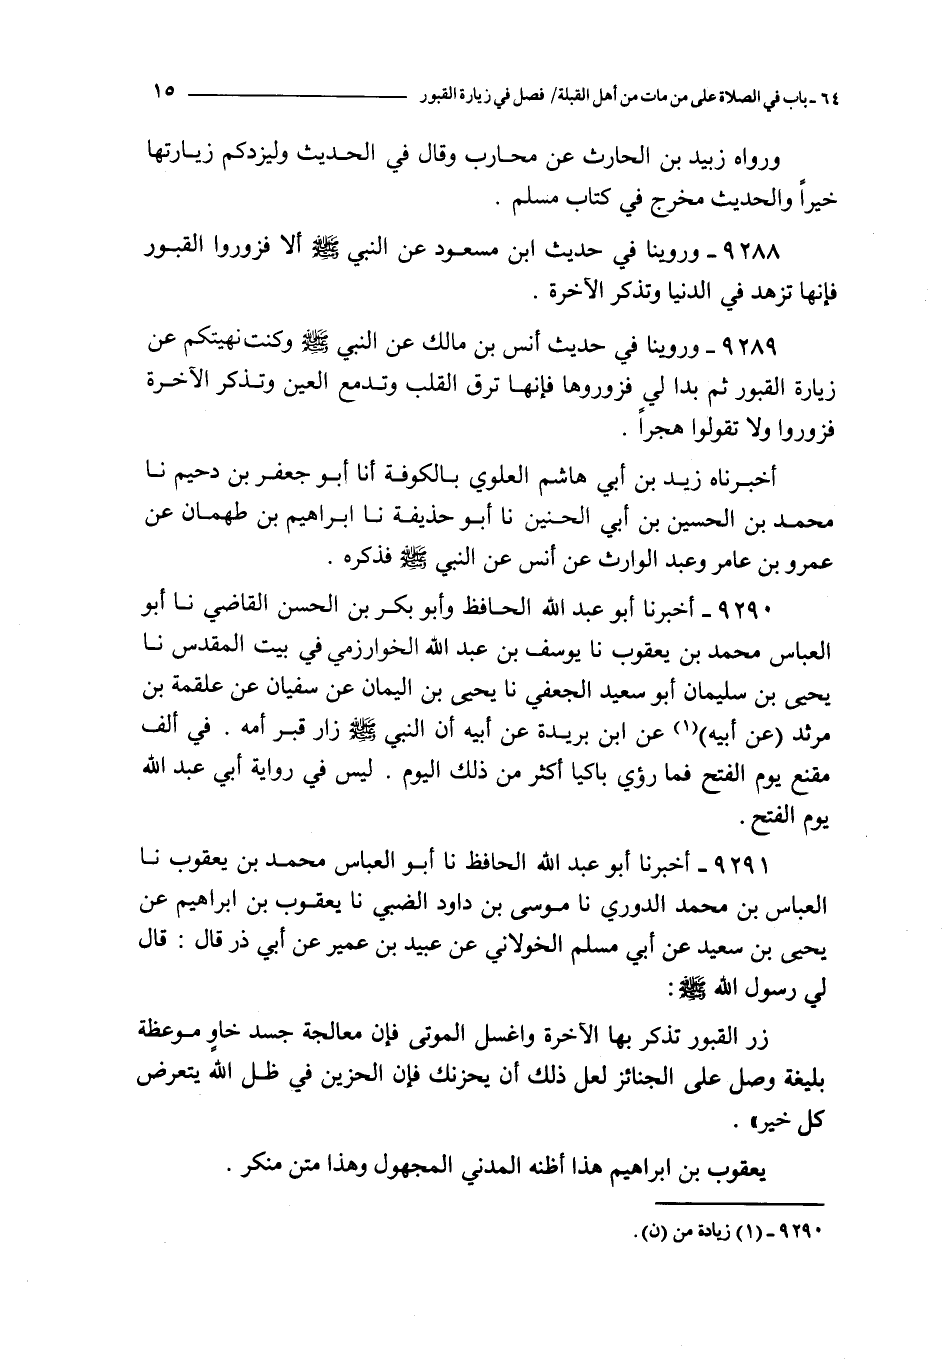 ٦٤ ـ باب في الصلاة على من مات من أهل القبلة/ فصل في زيارة القبور ١٥
ورواه زبيد بن الحارث عن محارب وقال في الحديث وليزدكم زيارتها
خيراً والحديث مخرج في كتاب مسلم .
٩٢٨٨ ـ وروينا في حديث ابن مسعود عن النبي ﷺ ألا فزوروا القبور
فإنها تزهد في الدنيا وتذكر الآخرة .
٩٢٨٩ ـ وروينا في حديث أنس بن مالك عن النبي ﷺ وكنت نهيتكم عن
زيارة القبور ثم بدا لي فزوروها فإنها ترق القلب وتدمع العين وتذكر الآخرة
فزوروا ولا تقولوا هجراً .
أخبرناه زيد بن أبي هاشم العلوي بالكوفة أنا أبو جعفر بن دحيم نا
محمد بن الحسين بن أبي الحنين نا أبو حذيفة نا ابراهيم بن طهمان عن
عمرو بن عامر وعبد الوارث عن أنس عن النبي ﷺ فذكره .
٩٢٩٠ ـ أخبرنا أبو عبد الله الحافظ وأبو بكر بن الحسن القاضي نا أبو
العباس محمد بن يعقوب نا يوسف بن عبد الله الخوارزمي في بيت المقدس نا
يحيى بن سليمان أبو سعيد الجعفي نا يحيى بن اليمان عن سفيان عن علقمة بن
مرثد (عن أبيه)(١) عن ابن بريدة عن أبيه أن النبي ﷺ زار قبر أمه . في ألف
مقنع يوم الفتح فما رؤي باكيا أكثر من ذلك اليوم . ليس في رواية أبي عبد الله
يوم الفتح .
٩٢٩١ ـ أخبرنا أبو عبد الله الحافظ نا أبو العباس محمد بن يعقوب نا
العباس بن محمد الدوري نا موسى بن داود الضبي نا يعقوب بن ابراهيم عن
يحيى بن سعيد عن أبي مسلم الخولاني عن عبيد بن عمير عن أبي ذر قال : قال
لي رسول الله ﷺ :
زر القبور تذكر بها الآخرة واغسل الموتى فإن معالجة جسد خاوٍ موعظة
بليغة وصل على الجنائز لعل ذلك أن يحزنك فإن الحزين في ظل الله يتعرض
كل خير» .
يعقوب بن ابراهيم هذا أظنه المدني المجهول وهذا متن منكر .
٩٢٩٠ ـ (١) زيادة من (ن).